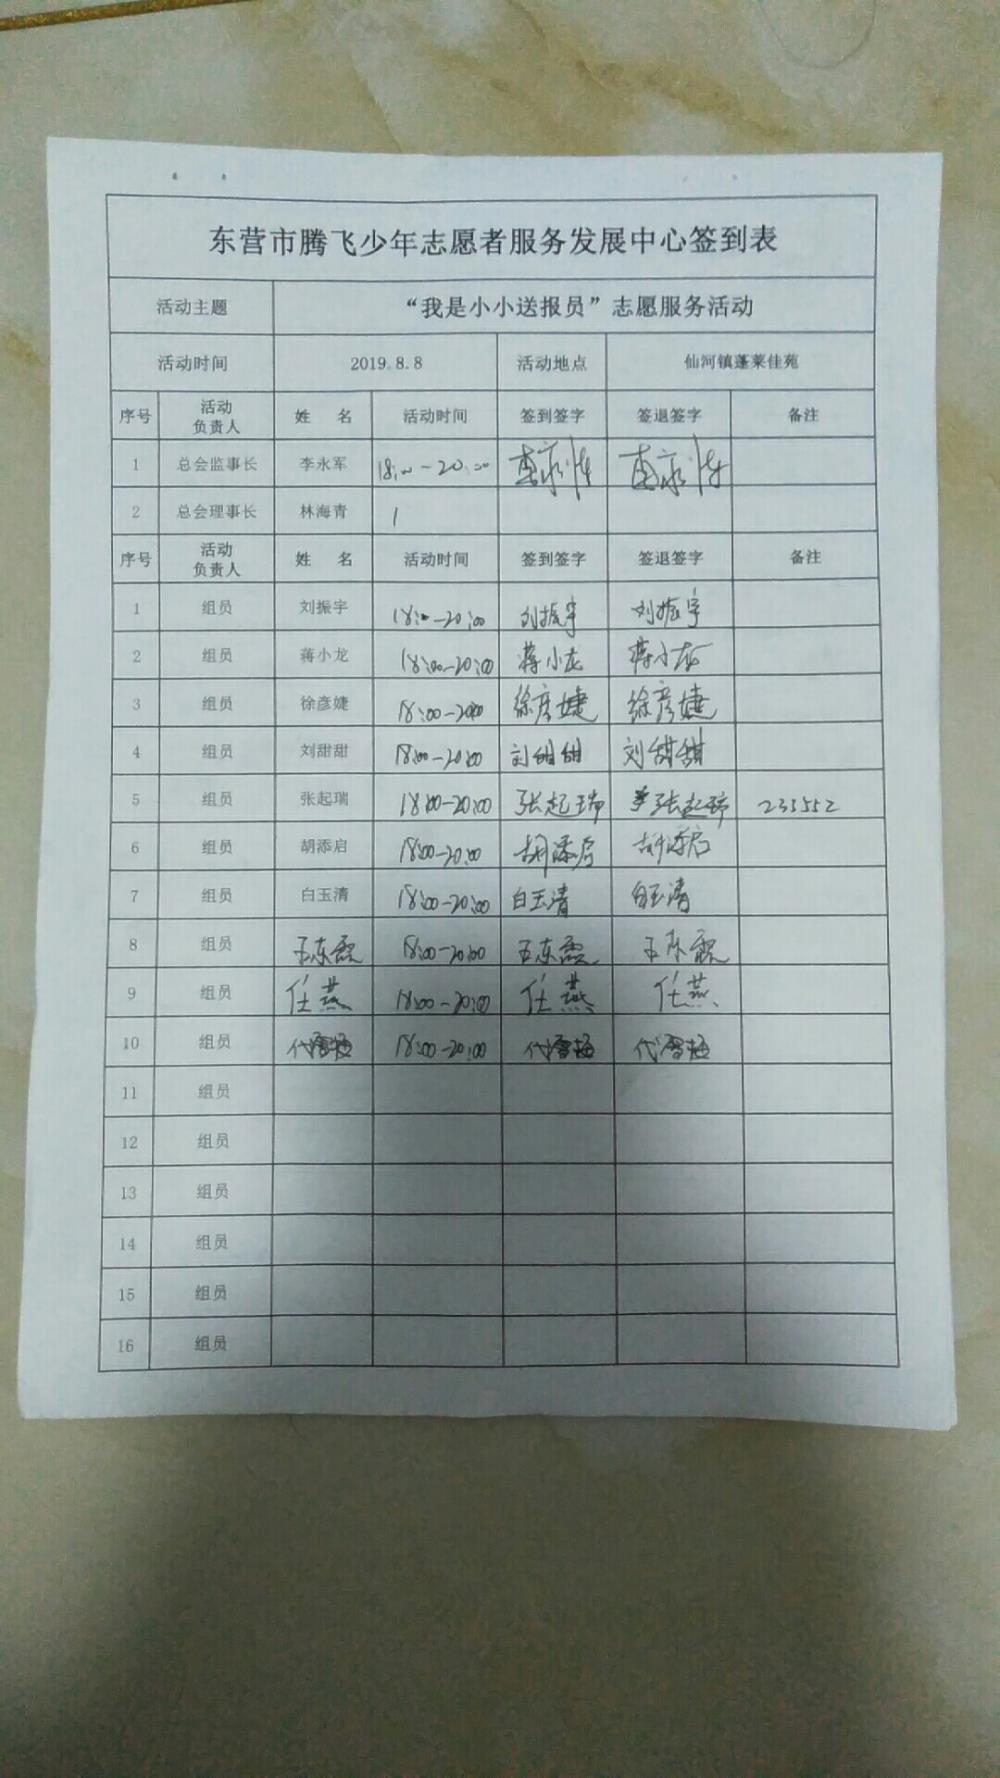 东营市腾飞少年志愿者服务发展中心签到表
活动主题 “我是小小送报员”志愿服务活动
活动时间 2019.8.8 活动地点 仙河镇蓬莱佳苑
序号 活动负责人 姓 名 活动时间 签到签字 签退签字 备注
1 总会监事长 李永军 18:00-20:00 李永军 李永军
2 总会理事长 林海青
序号 活动负责人 姓 名 活动时间 签到签字 签退签字 备注
1 组员 刘振宇 18:00-20:00 刘振宇 刘振宇
2 组员 蒋小龙 18:00-20:00 蒋小龙 蒋小龙
3 组员 徐彦婕 18:00-20:00 徐彦婕 徐彦婕
4 组员 刘甜甜 18:00-20:00 刘甜甜 刘甜甜
5 组员 张起瑞 18:00-20:00 张起瑞 张起瑞 235552
6 组员 胡添启 18:00-20:00 胡添启 胡添启
7 组员 白玉清 18:00-20:00 白玉清 白玉清
8 组员 王东霞 18:00-20:00 王东霞 王东霞
9 组员 任燕 18:00-20:00 任燕 任燕
10 组员 18:00-20:00
11 组员
12 组员
13 组员
14 组员
15 组员
16 组员